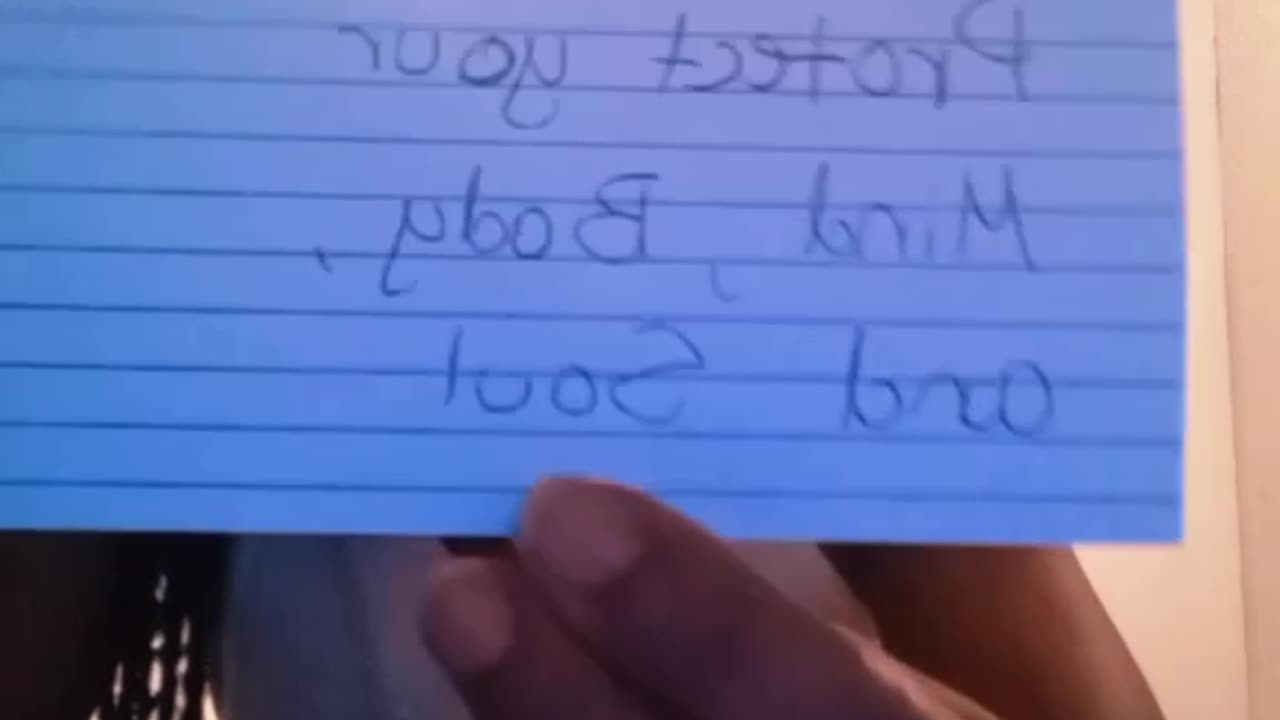 Protect your
Mind, Body,
and Soul